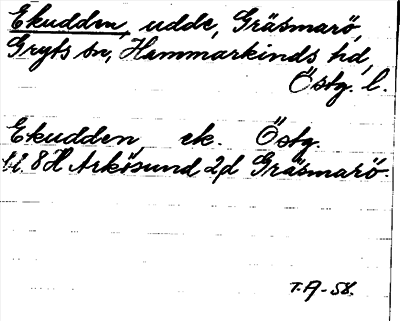 Ekudden, udde, Gräsmarö,
Gryts sn, Hammarkinds hd,
Östg. l.
Ekudden ek. Östg.
bl. 8H Arkösund 2d Gräsmarö.
T.A-58.